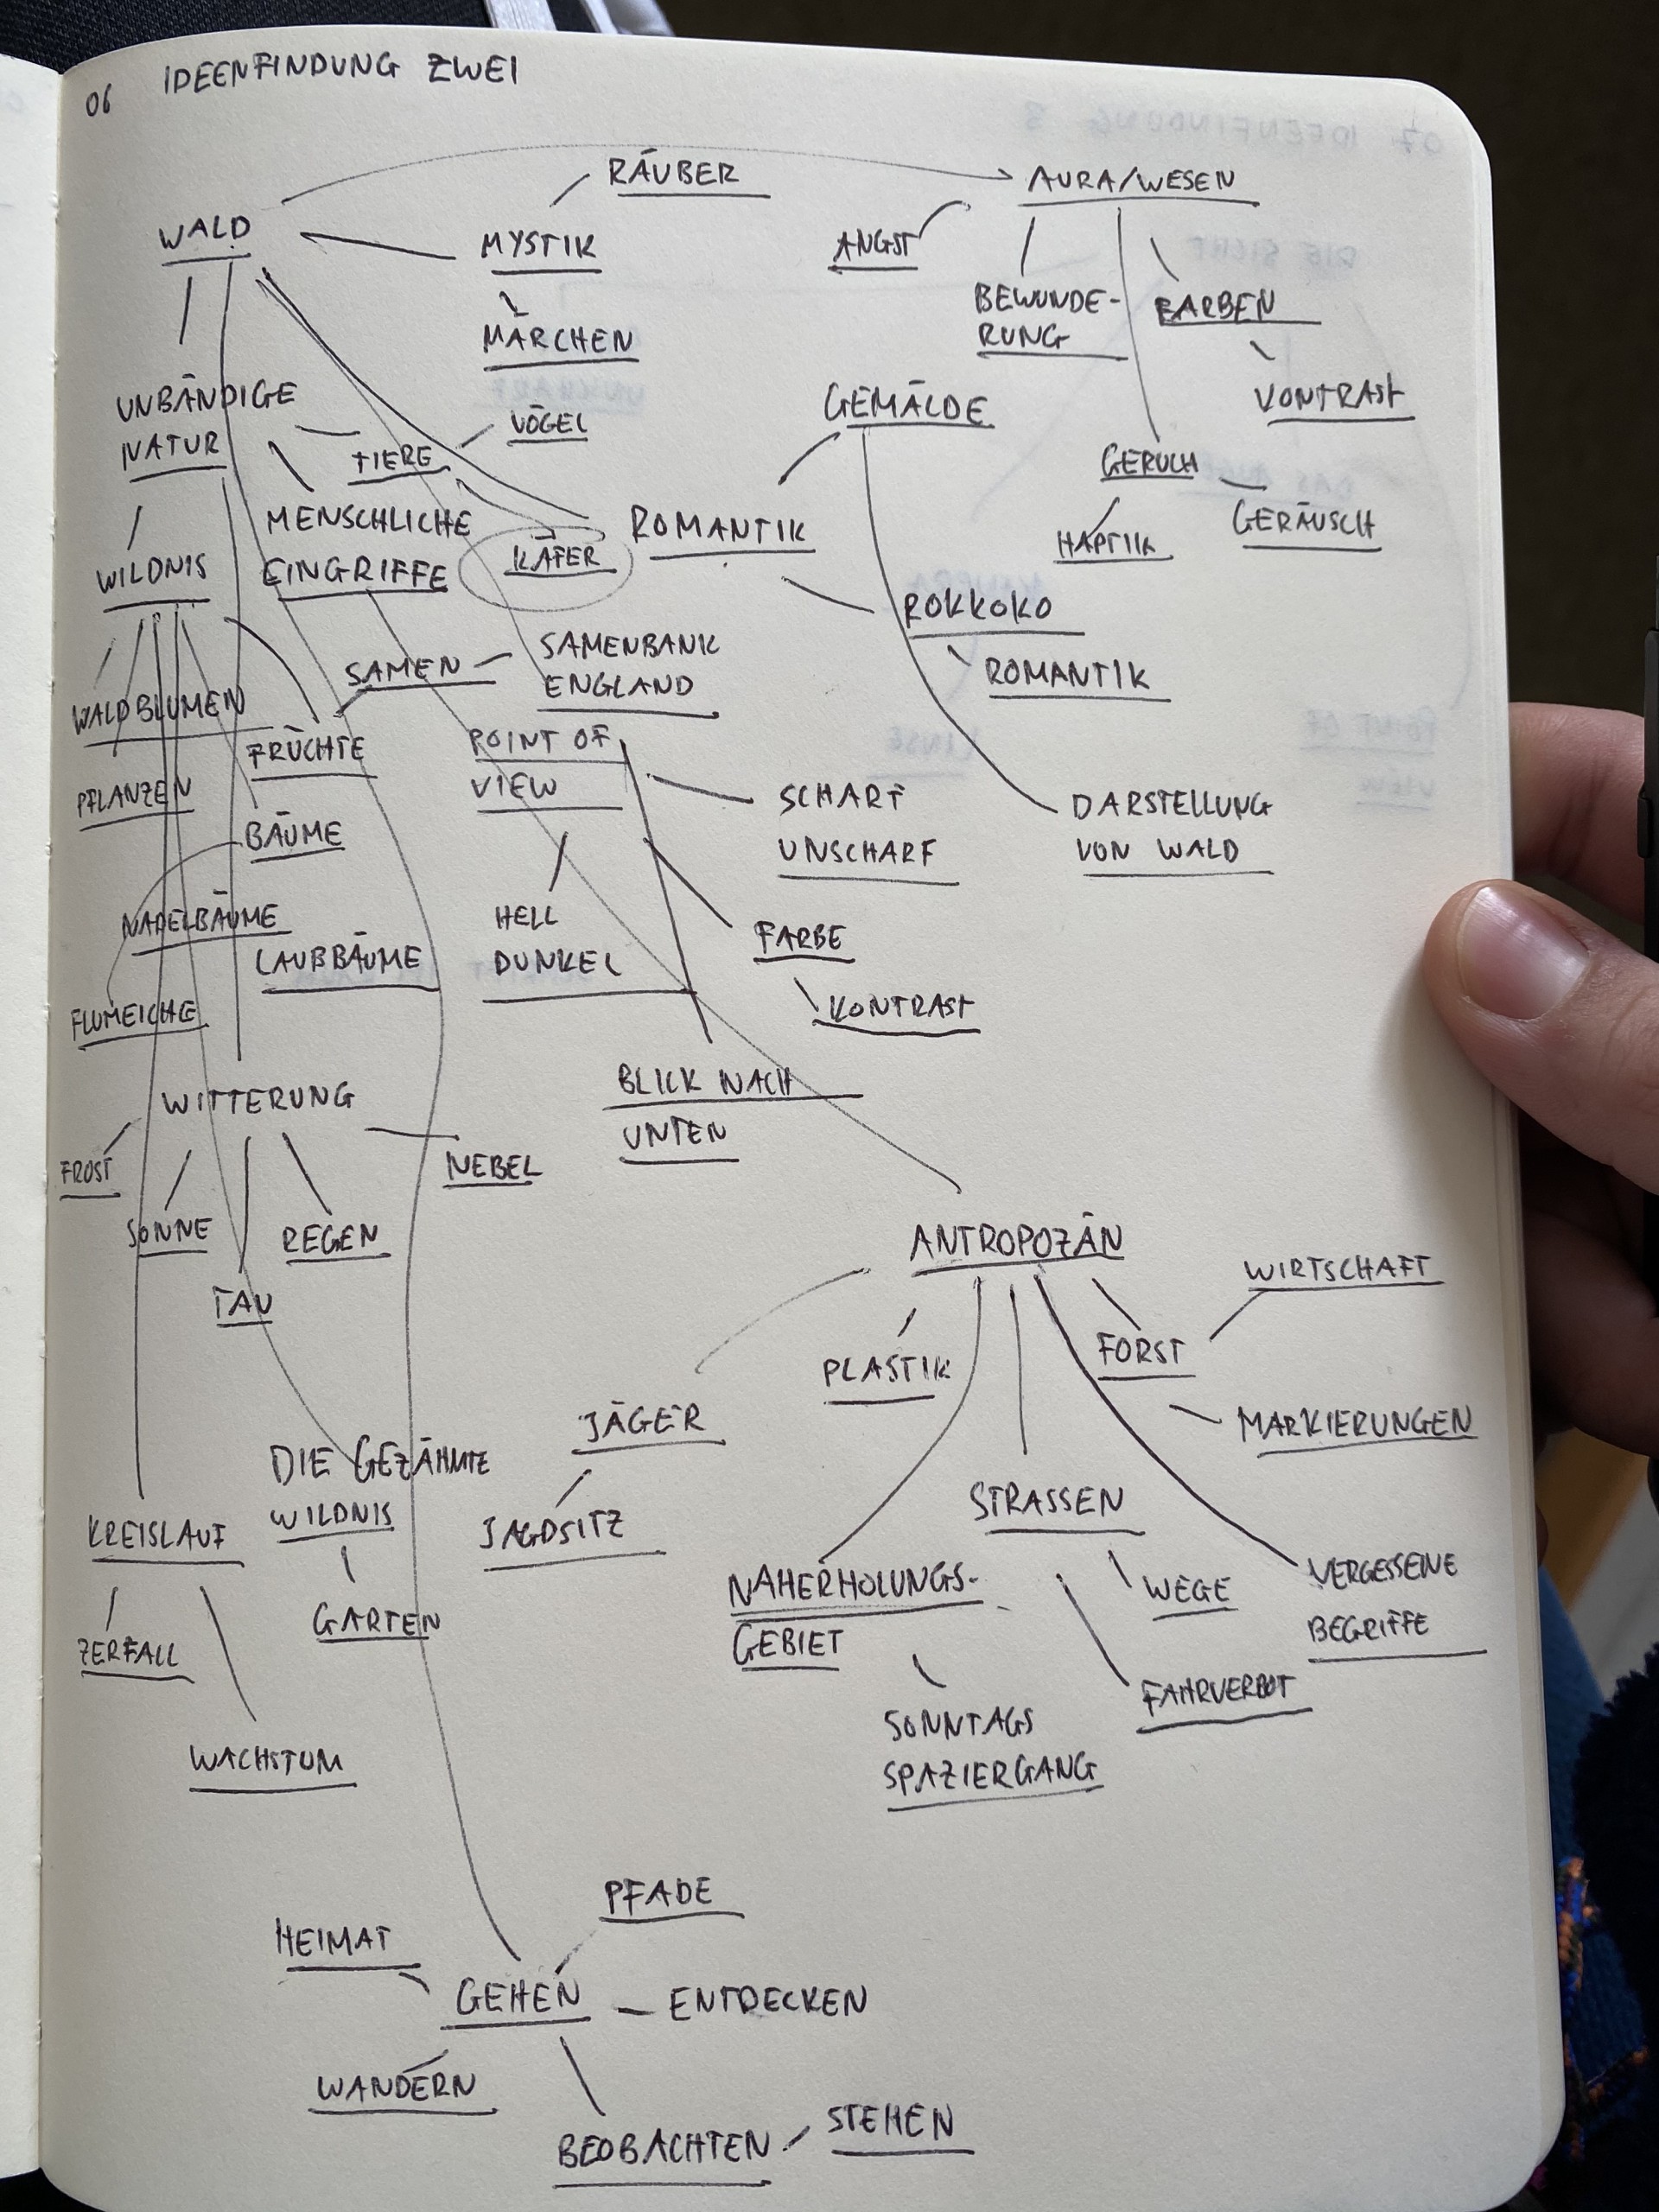 06 IDEENFINDUNG ZWEI
RÄUBER
AURA/WESEN
WALD
MYSTIK
ANGST
MÄRCHEN
BEWUNDE-
RUNG
FARBEN
VONTRAST
UNBÄNDIGE
NATUR
VÖGEL
TIERE
GEMÄLDE
GERUCH
GERÄUSCH
HAPTIK
MENSCHLICHE
EINGRIFFE
KÄFER
ROMANTIK
WILDNIS
ROKKOKO
ROMANTIK
SAMEN
SAMENBANK
ENGLAND
WALDBLUMEN
FRÜCHTE
PFLANZEN
POINT OF
VIEW
SCHARF
UNSCHARF
DARSTELLUNG
VON WALD
BÄUME
NADELBÄUME
LAUBBÄUME
HELL
DUNKEL
FARBE
KONTRAST
FLUMEICHE
BLICK NACH
UNTEN
WITTERUNG
FROST
SONNE
REGEN
NEBEL
TAU
ANTROPOZÄN
WIRTSCHAFT
PLASTIK
FORST
MARKIERUNGEN
JÄGER
JAGDSITZ
STRASSEN
DIE GEZÄHMTE
WILDNIS
KREISLAUF
GARTEN
ZERFALL
WACHSTUM
NAHERHOLUNGS-
GEBIET
WEGE
VERGESSENE
BEGRIFFE
FAHRVERBOT
SONNTAGS
SPAZIERGANG
PFADE
HEIMAT
GEHEN
ENTDECKEN
WANDERN
BEOBACHTEN
STEHEN
07 IDEENFINDUNG 3
DIE SICHT
UNSCHARF
KAMERA
LINSE
POINT OF
VIEW